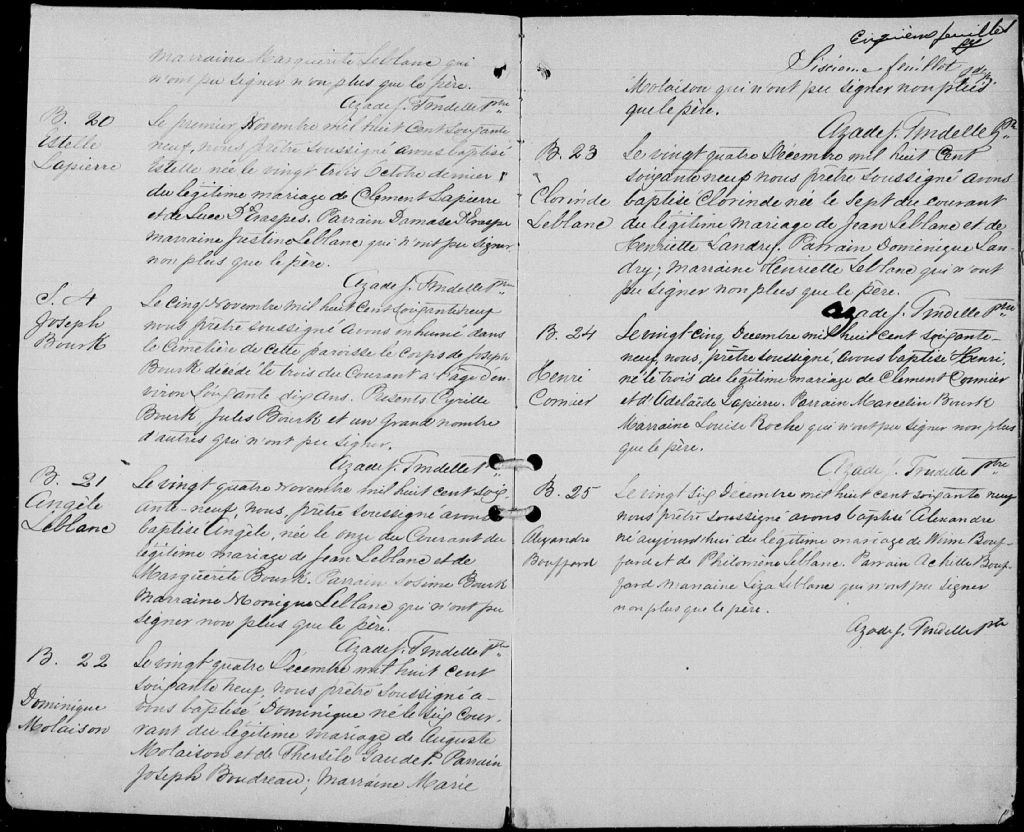 marraine Marguerite Leblanc qui
n'ont pu signer n'on plus que le père.
Azade J. Trudelle Ptre
B. 20
Estelle
Lapierre
Le premier Novembre mil huit Cent soixante
neuf, nous prêtre soussigné avons baptisé
Estelle née le vingt trois Octobre dernier
du légitime mariage de Clement Lapierre
et de Luce D'Eraspes. Parrain Damase D'Eraspe
marraine Justine Leblanc qui n'ont pu signer
non plus que le père.
Azade J. Trudelle Ptre
S. 4
Joseph
Bourk
Le Cinq Novembre mil huit Cent soixante neuf
nous prêtre soussigné avons inhumé dans
le Cimetière de cette paroisse le corps de Joseph
Bourk décédé le trois du Courant a l'age d'en
viron soixante dix ans. Présents Cyrille
Bourk Jules Bourk et un grand nombre
d'autres qui n'ont pu signer.
Azade J. Trudelle Ptre
B. 21
Angèle
Leblanc
Le vingt quatre Novembre mil huit cent soix
ante-neuf, nous, prêtre soussigné avons
baptisé Angèle, née le onze du Courant du
légitime mariage de Jean Leblanc et de
Marguerite Bourk. Parrain Sosime Bourk
Marraine Monique Leblanc qui n'ont pu
signer non plus que le père.
Azade J. Trudelle Ptre
B. 22
Dominique
Molaison
Le vingt quatre Décembre mil huit cent
soixante neuf, nous prêtre soussigné a-
vons baptisé Dominique né le six cour-
rant du légitime mariage de Auguste
Molaison et de Thersile Gaudet. Parrain
Joseph Boudreau; Marraine Marie
Cinquième feuillet
Sixieme feuillet
Molaison qui n'ont pu signer non plus
que le père.
Azade J. Trudelle Ptre
B. 23
Clorinde
Leblanc
Le vingt quatre Décembre mil huit Cent
soixante neuf nous prêtre soussigné avons
baptisé Clorinde née le sept du courant
du légitime mariage de Jean Leblanc et de
Henriette Landry. Parrain Dominique Lan-
dry; Marraine Henriette Leblanc qui n'ont
pu signer non plus que le père.
Azade J. Trudelle Ptre
B. 24
Henri
Cormier
Le vingt-cinq Decembre mil huit cent soixante-
neuf, nous, prêtre soussigné avons baptisé Henri,
né le trois du légitime mariage de Clement Cormier
et d'Adelaïde Lapierre. Parrain Marcelin Bourk
Marraine Louise Roche qui n'ont pu signer non plus
que le père.
Azade J. Trudelle Ptre
B. 25
Alexandre
Bouffard
Le vingt six Décembre mil huit cent soixante neuf
nous prêtre soussigné avons baptisé Alexandre
né aujourd'hui du légitime mariage de Wm Bouf-
fard et de Philomène Leblanc. Parrain Achille Bouf-
fard Marraine Liza Leblanc qui n'ont pu signer
non plus que le père.
Azade J. Trudelle Ptre